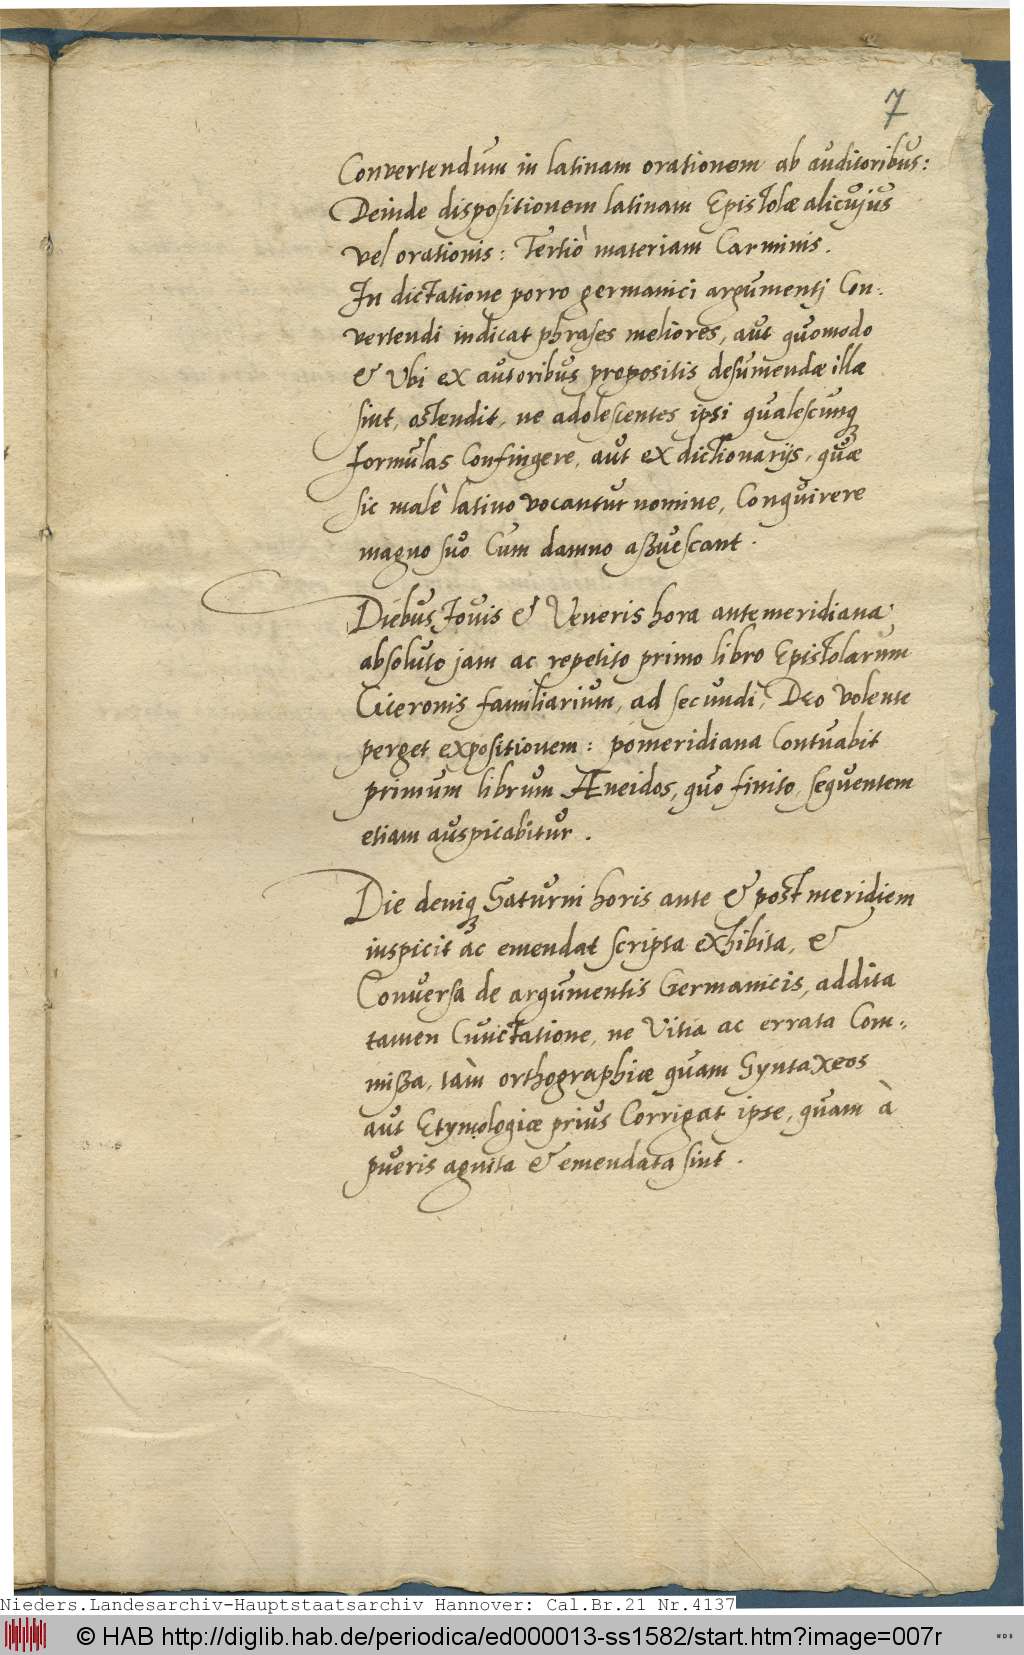 7
Convertendum in latinam orationem ab auditoribus:
Deinde dispositionem latinam Epistolæ alicujus
vel orationis: Tertiò materiam Carminis.
In dictatione porro germanici argumentj Con-
vertendi indicat phrases meliores, aut quomodo
& Ubi ex autoribus propositis desumendæ illæ
sint, ostendit, ne adolescentes ipsi qualescunq
formulas Confingere, aut ex dictionarijs, quæ
sic malè latino vocantur nomine, Conquirere
magno suo Cum damno aßuescant.
Diebus Jovis & Veneris hora antemeridiana,
absoluto jam ac repetito primo libro Epistolarum
Ciceronis familiarium, ad secundi, Deo volente
perget expositionem: pomeridiana Contuabit
primum librum Æneidos, quo finito, sequentem
etiam auspicabitur.
Die deniq Saturni horis ante & post meridiem
inspicit ac emendat scripta exhibita, &
Conversa de argumentis Germanicis, addita
tamen Cunctatione, ne Vitia ac errata Com-
mißa, tàm orthographiæ quam Syntaxeos
aut Etymologiæ prius Corrigat ipse, quam à
pueris agnita & emendata sint.
Nieders.Landesarchiv-Hauptstaatsarchiv Hannover: Cal.Br.21 Nr.4137
© HAB http://diglib.hab.de/periodica/ed000013-ss1582/start.htm?image=007r
WDB